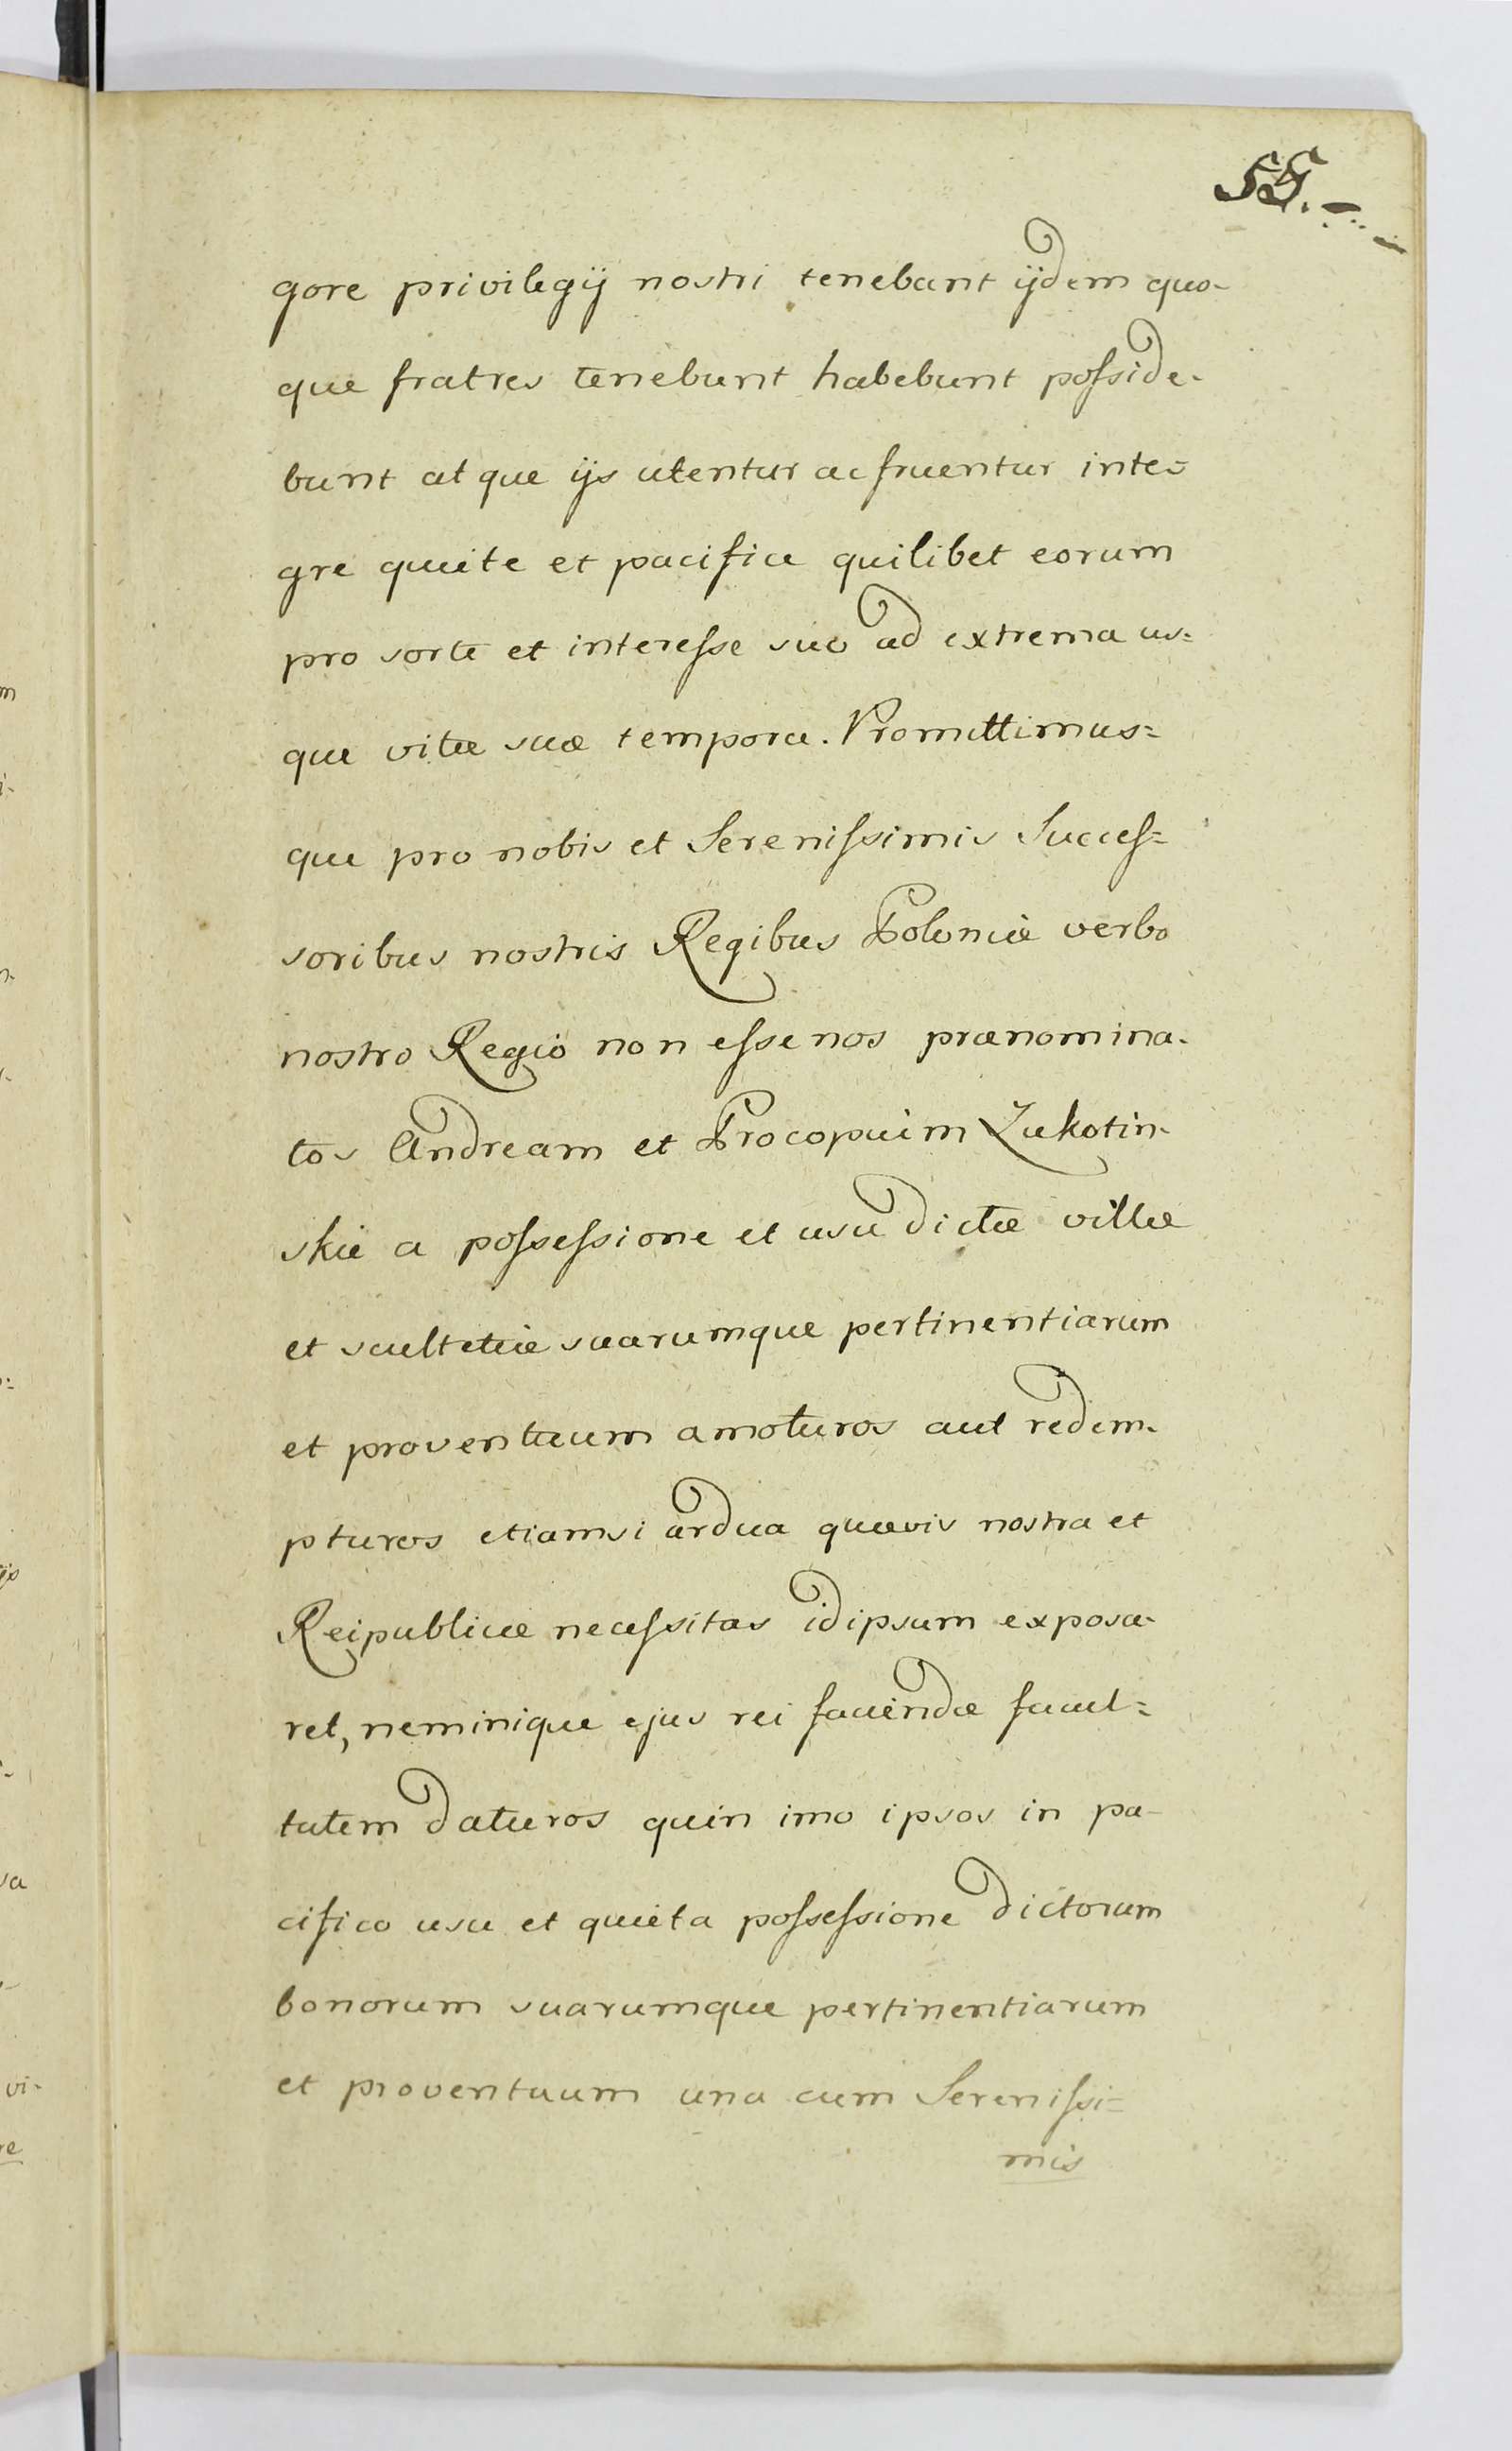 gore privilegij nostri tenebant ijdem quo-
que fratres tenebunt habebunt posside-
bunt atque ijs utentur ac fruentur inte=
gre quiete et pacifice quilibet eorum
pro sorte et interesse suo ad extrema us=
que vitæ suæ tempora. Promittimus=
que pro nobis et Serenissimis Succes=
soribus nostris Regibus Poloniæ verbo
nostro Regio non esse nos prænomina-
tos Andream et Procopium Zukotin-
skie a possessione et usu dictæ villæ
et scultetiæ suarumque pertinentiarum
et proventuum amoturos aut redem-
pturos etiamsi ardua quævis nostra et
Reipublicæ necessitas idipsum exposce-
ret, neminique ejus rei faciendæ facul=
tatem daturos quin imo ipsos in pa-
cifico usu et quieta possessione dictorum
bonorum suarumque pertinentiarum
et proventuum una cum Serenissi=
mis